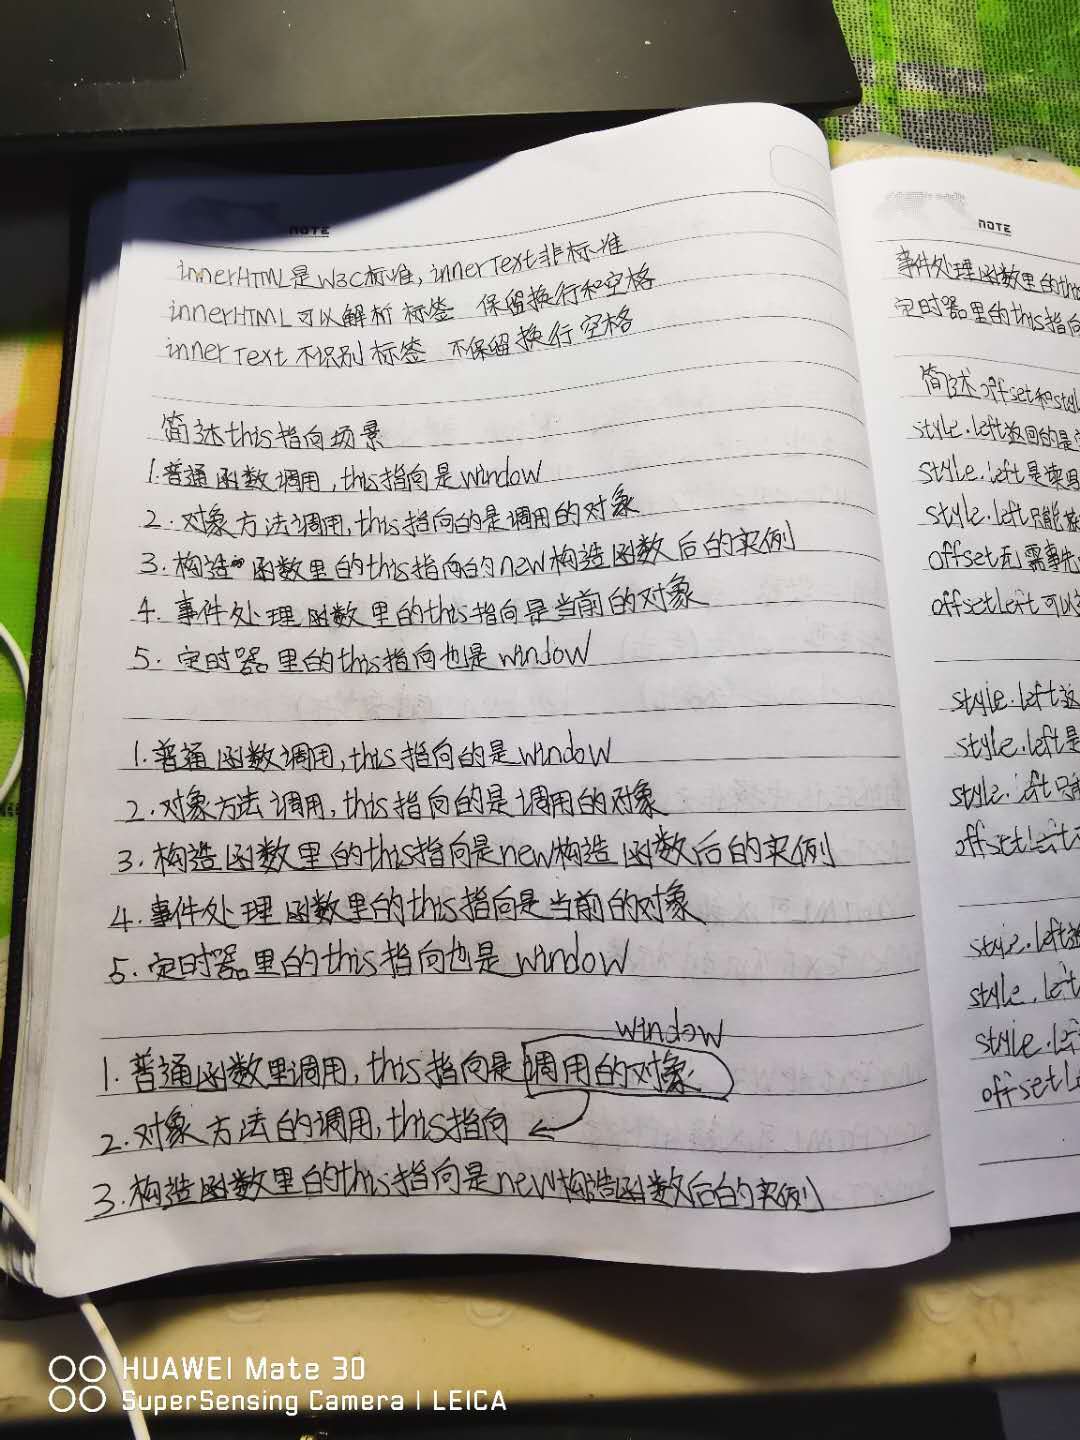 NOTE
innerHTML是W3C标准,innerText非标准
innerHTML可以解析标签 保留换行和空格
innerText不识别标签 不保留换行空格
简述this指向场景
1.普通函数调用,this指向是window
2.对象方法调用,this指向的是调用的对象
3.构造函数里的this指向的new构造函数后的实例
4.事件处理函数里的this指向是当前的对象
5.定时器里的this指向也是window
1.普通函数调用,this指向的是window
2.对象方法调用,this指向的是调用的对象
3.构造函数里的this指向是new构造函数后的实例
4.事件处理函数里的this指向是当前的对象
5.定时器里的this指向也是window
window
1.普通函数里调用,this指向是调用的对象
2.对象方法的调用,this指向
3.构造函数里的this指向是new构造函数后的实例
NOTE
事件处理函数里的this
定时器里的this指向
简述offset和style
style.left返回的是
style.left是读写
style.left只能
offset无需事先
offsetLeft可以
style.left返
style.left是
style.left只
offsetLeft
style.left
style.left
style.left
offsetLe
HUAWEI Mate 30
SuperSensing Camera | LEICA